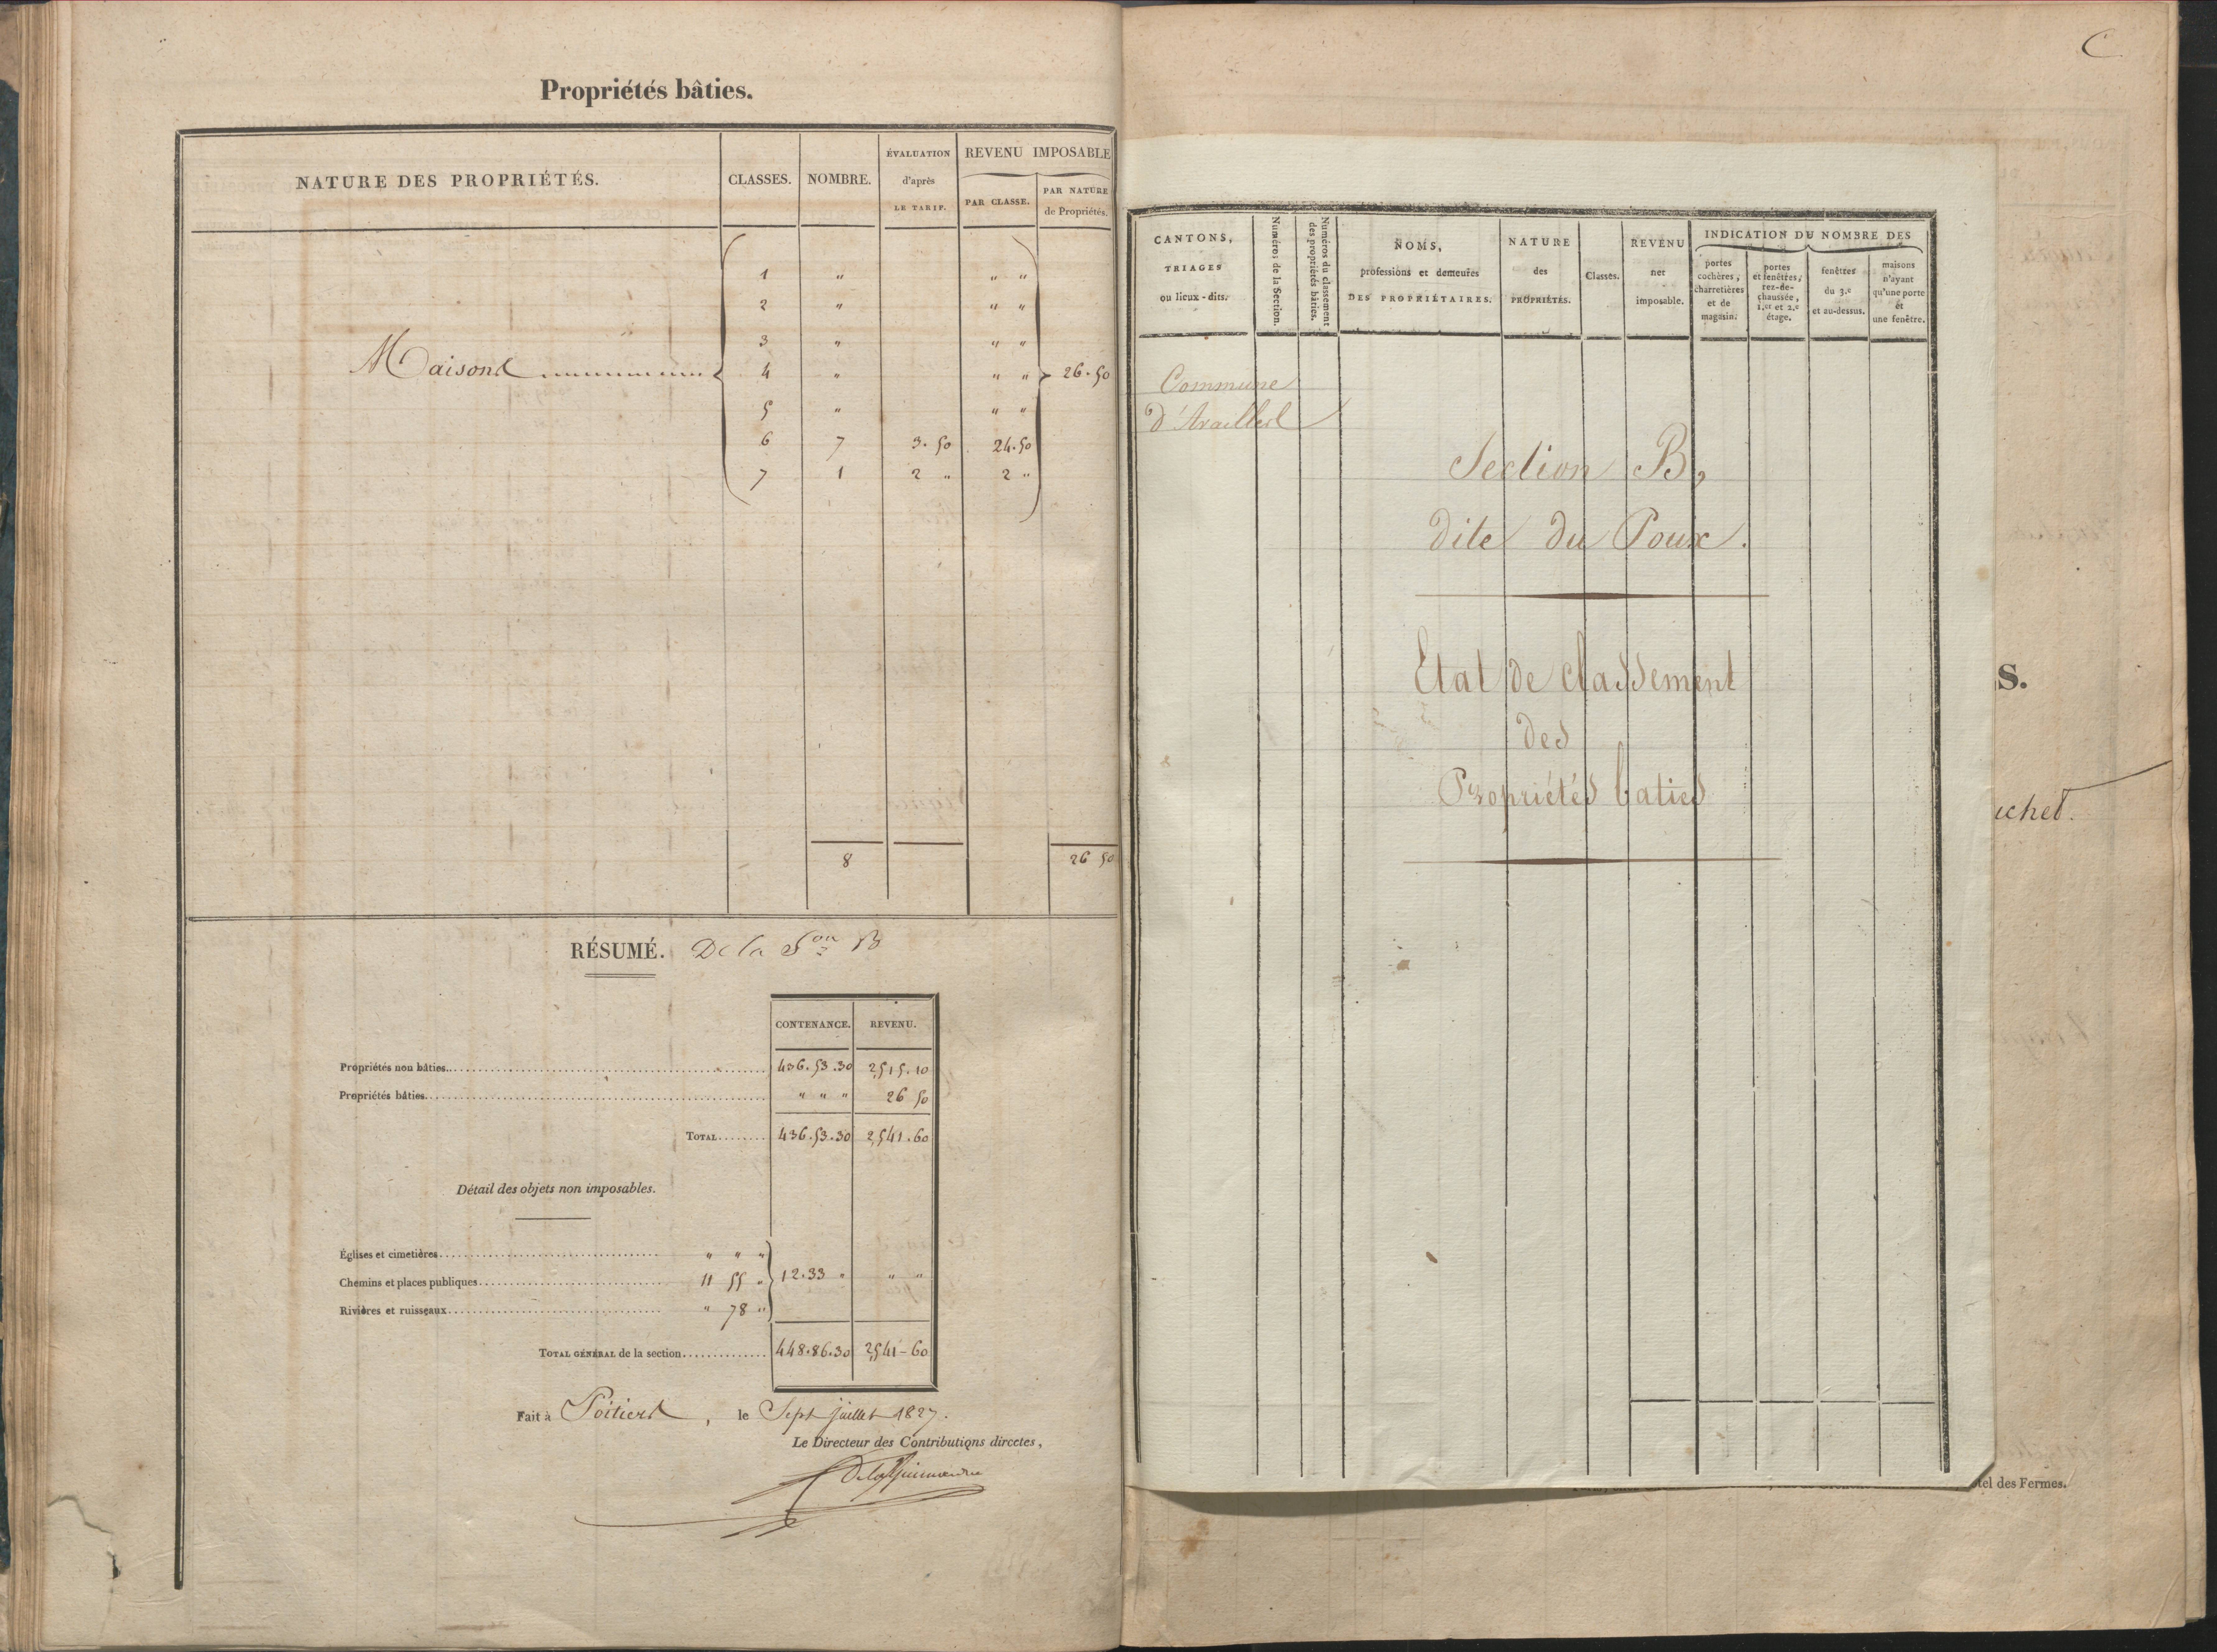 Propriétés bâties.
NATURE DES PROPRIÉTÉS. CLASSES. NOMBRE. ÉVALUATION d'après LE TARIF. REVENU IMPOSABLE PAR CLASSE. PAR NATURE de Propriétés.
1 " " "
2 " " "
3 " " "
Maisons 4 " " " 26.50
5 " " "
6 7 3.50 24.50
7 1 2 " 2 "
8 26 50
RÉSUMÉ. De la Son B
CONTENANCE. REVENU.
Propriétés non bâties 436.53.30 2,515.10
Propriétés bâties " " " 26 50
TOTAL 436.53.30 2,541.60
Détail des objets non imposables.
Églises et cimetières " " "
Chemins et places publiques 11 55 " 12.33 " " "
Rivières et ruisseaux " 78 "
TOTAL GÉNÉRAL de la section 448.86.30 2,541-60
Fait à Poitiers, le Sept juillet 1827.
Le Directeur des Contributions dircetes,
C
CANTONS, TRIAGES ou lieux-dits. Numéros de la Section. Numéros du classement des propriétés bâties. NOMS, professions et demeures DES PROPRIÉTAIRES. NATURE des PROPRIÉTÉS. Classes. REVENU net imposable. INDICATION DU NOMBRE DES portes cochères, charretières et de magasin. portes et fenêtres, rez-de-chaussée, 1.er et 2.e étage. fenêtres du 3.e et au-dessus. maisons n'ayant qu'une porte et une fenêtre.
Commune
d'Availles
Section B,
dite du Poux.
Etat de classement
des
Propriétés baties
S.
uchet.
tel des Fermes.